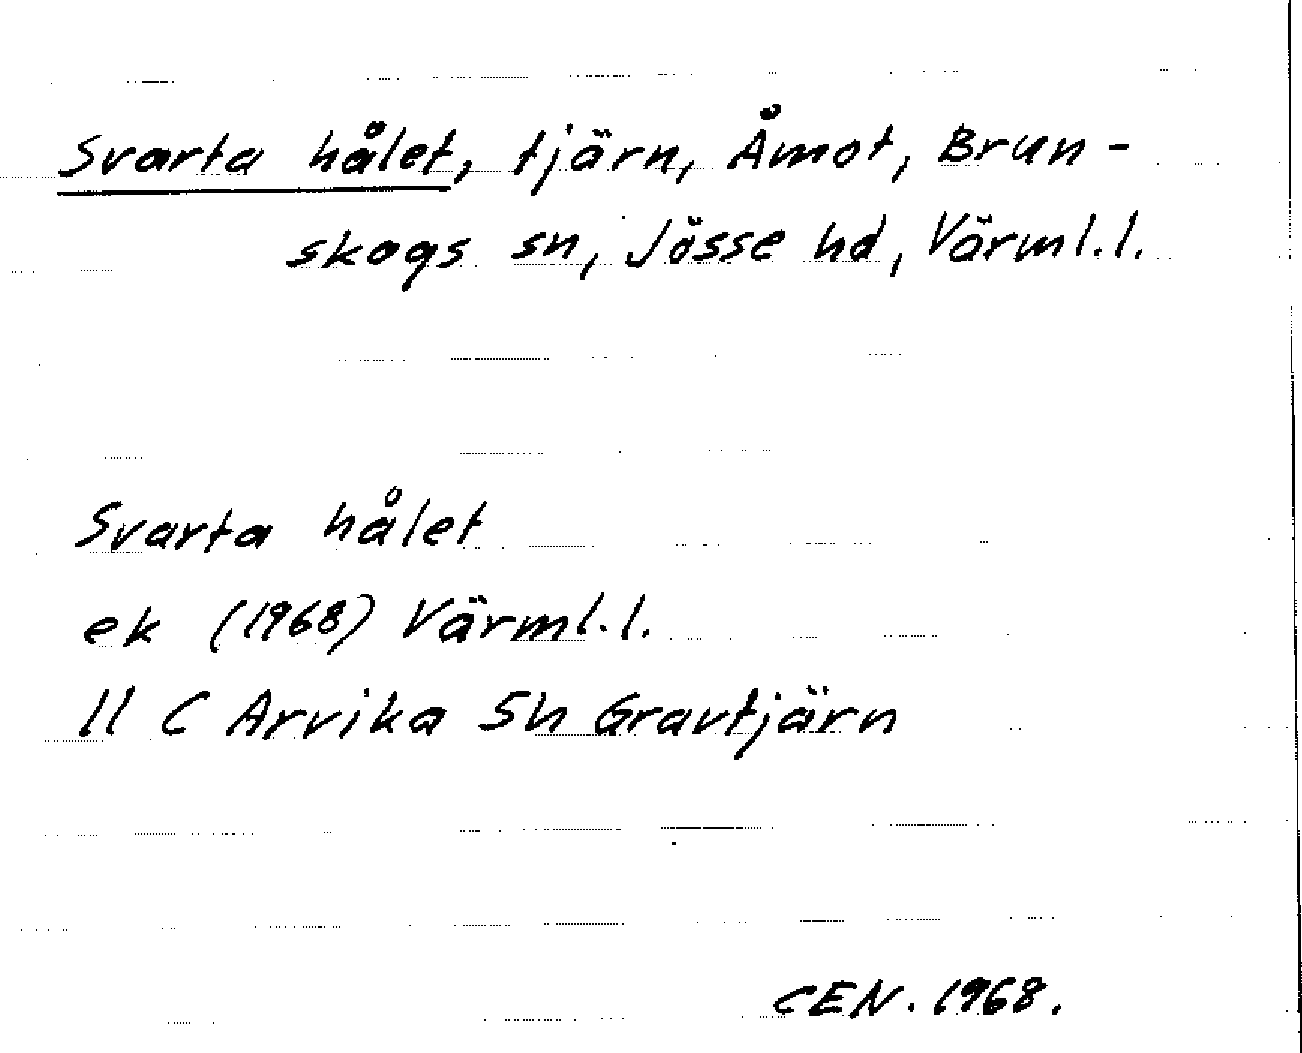 Svarta hålet, tjärn, Åmot, Brun-
skogs sn, Jösse hd, Värml.l.
Svarta hålet
ek (1968) Värml.l.
11 C Arvika 5h Gravtjärn
CEN. 1968.